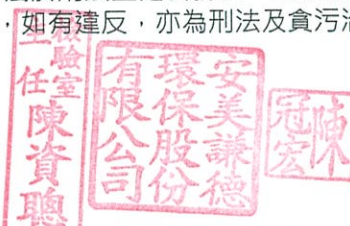 ,如有違反,亦為刑法及貪污治
檢驗室
主任
陳資聰
安美謙德
環保股份
有限公司
陳
冠宏